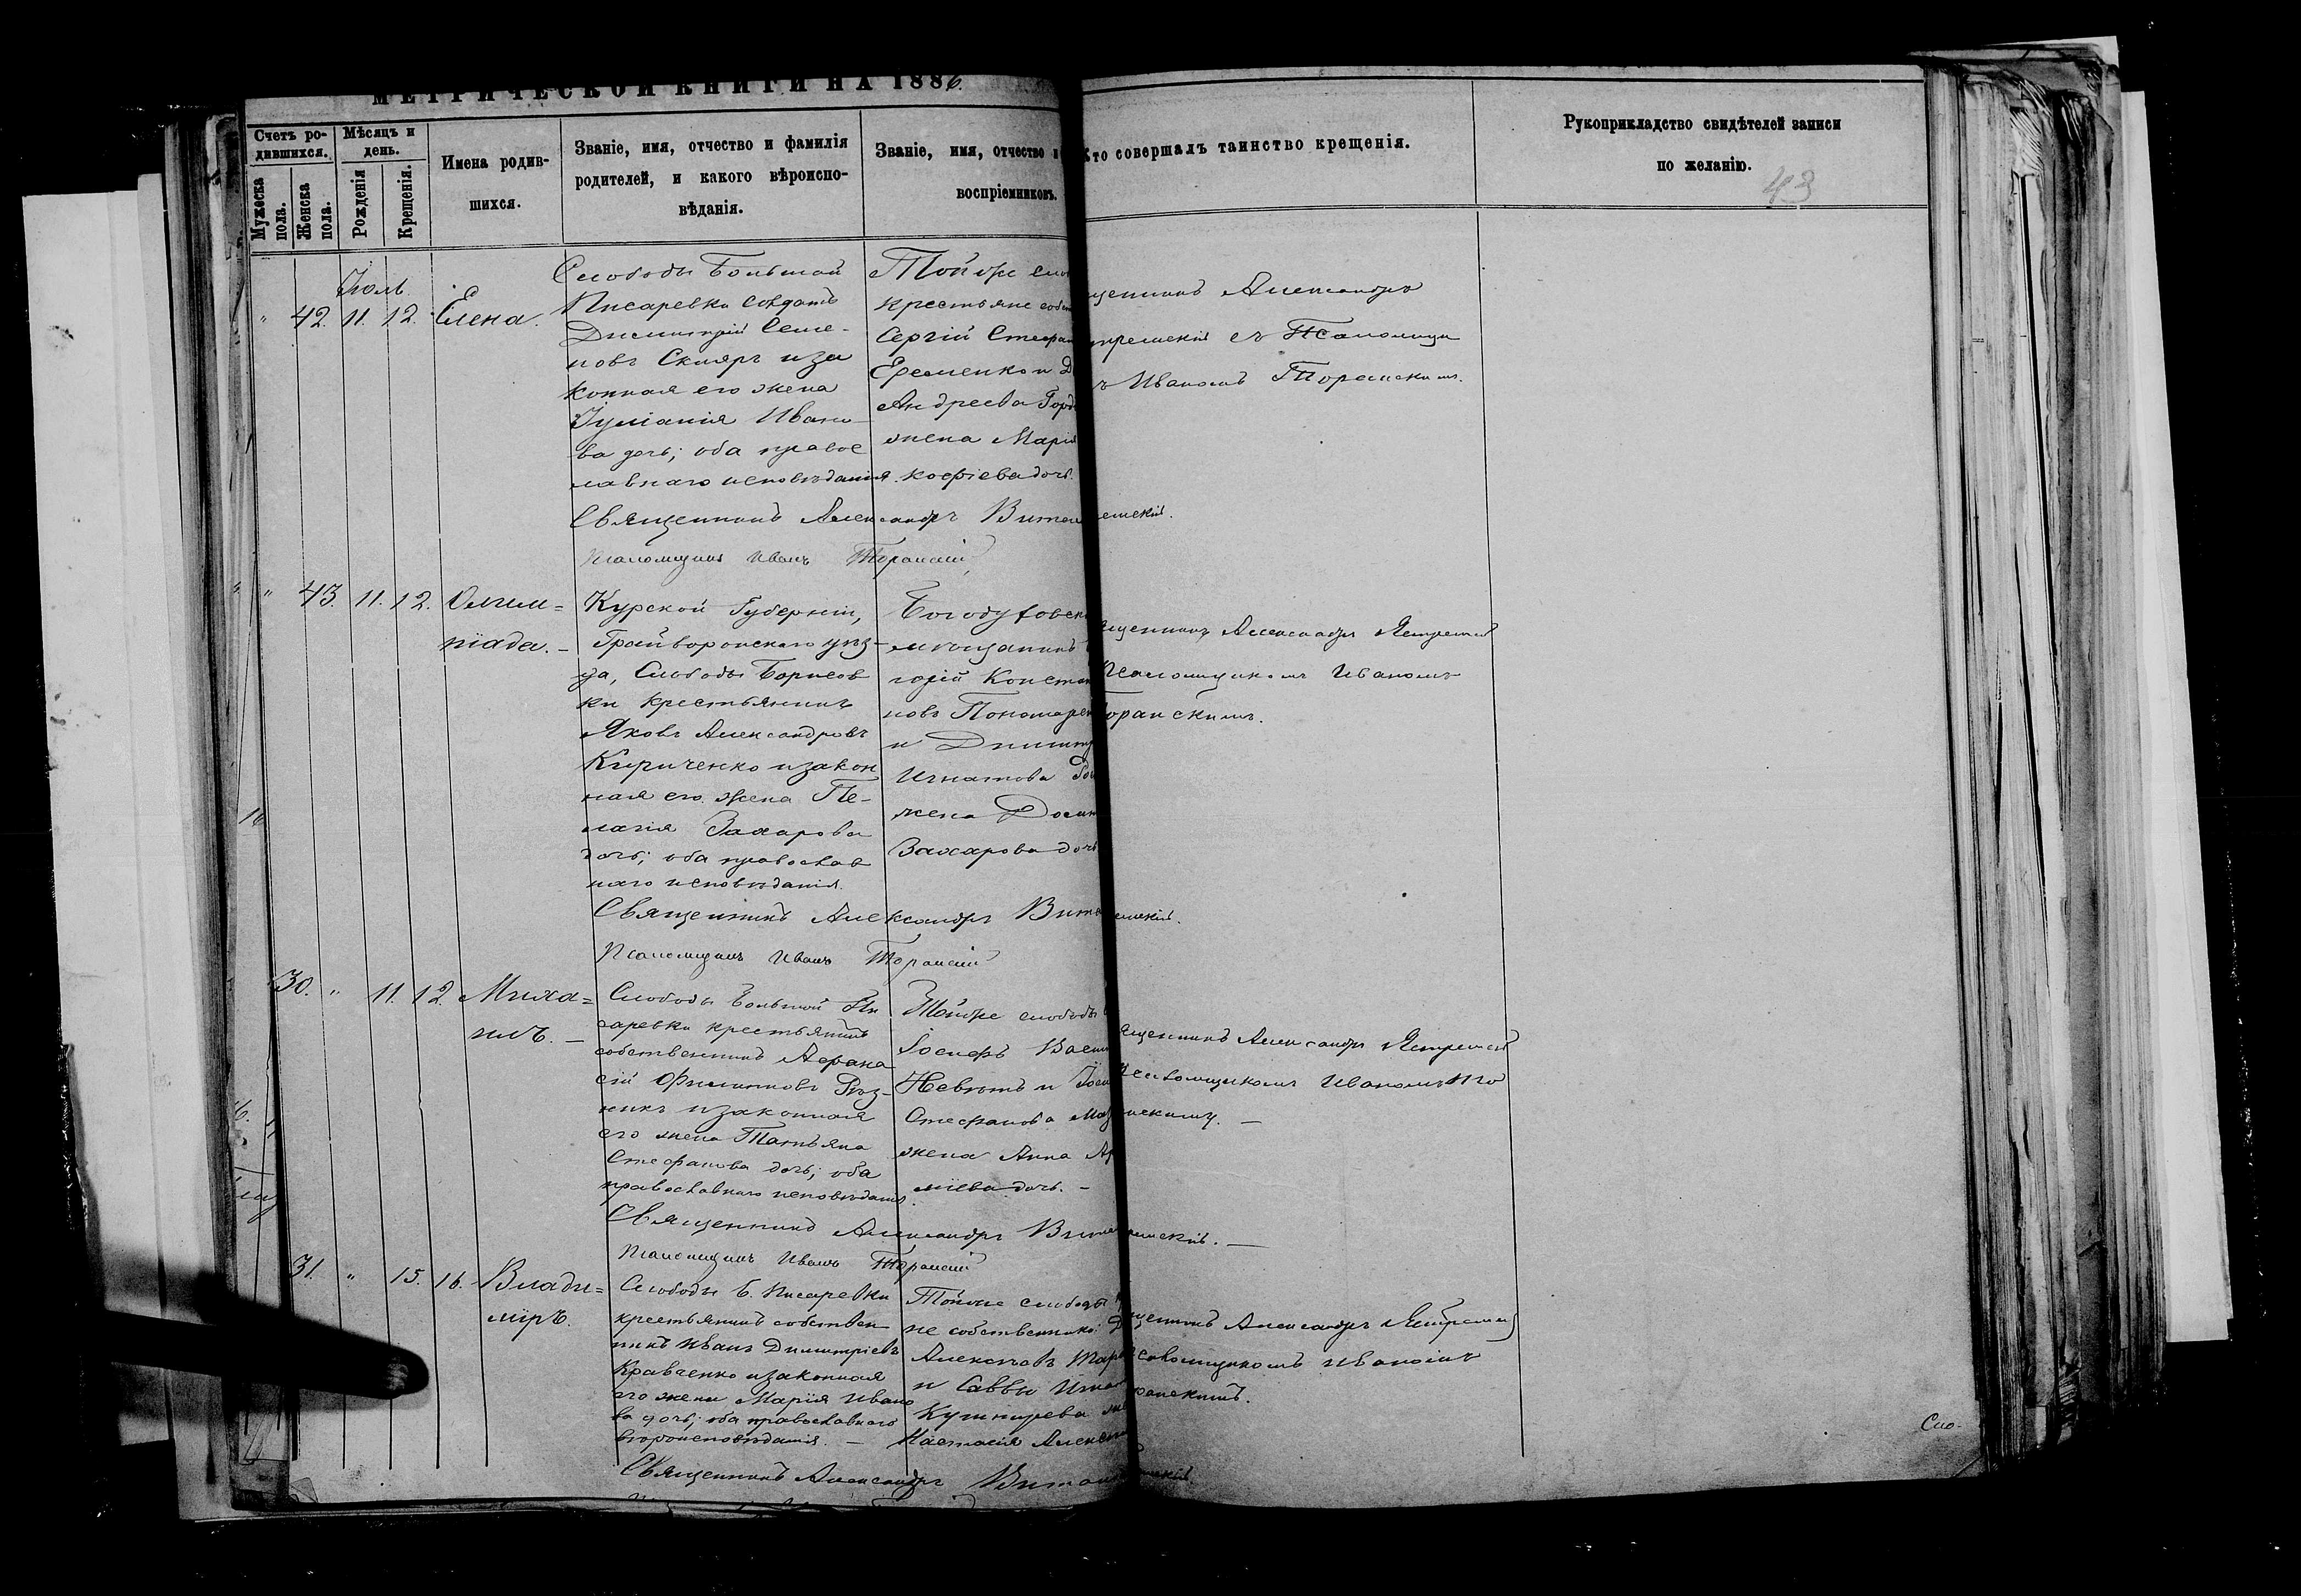 МЕТРИЧЕСКОЙ КНИГИ НА 1886.
Счетъ ро-
дившихся.
Мужеска
пола.
Женска
пола.
Мѣсяцъ и
день.
Рожденія
Крещенія.
Имена родив-
шихся.
Званіе, имя, отчество и фамилія
родителей, и какого вѣроиспо-
вѣданія.
Званіе, имя, отчество и
воспріемниковъ.
Кто совершалъ таинство крещенія.
Рукоприкладство свидѣтелей записи
по желанію.
43
Іюль
" 42. 11. 12. Елена.
Слободы Большой
Писаревки солдатъ
Димитрій Семе-
новъ Скляръ и за
конная его жена
Іуліанія Ивано-
ва дочь; оба правос
лавнаго исповѣданія.
Тойже сло
крестьяне собст
Сергій Стефан
Еременко и Д
Андреева Горд
жена Марія
кофіева дочь.
щенникъ Александръ
стремскій съ Псаломщи
ъ Иваномъ Торанскимъ.
Священникъ Александръ Витошемскій.
Псаломщикъ Иванъ Торанскій
" 43. 11. 12. Олим=
піада. -
Курской Губерніи,
Грайворонскаго уѣз-
да, Слободы Борисов
ки крестьянинъ
Яковъ Александровъ
Кириченко и закон
ная его жена Пе-
лагія Захарова
дочь; оба православ
наго исповѣданія.
Богодуховск
мѣщанинъ
горій Констан
новъ Пономарен
и Димитр
Игнатова
жена
Захарова дочь
щенникъ Александръ
Псаломщикомъ Иваномъ
Торанскимъ.
Священникъ Александръ
Псаломщикъ Иванъ Торанскій
30. " 11. 12. Миха=
илъ. -
Слободы Большой Пи
саревки крестьянинъ
собственникъ Афана
сій Филиповъ Рѣз-
никъ и законная
его жена Татьяна
Стефанова дочь; оба
православнаго исповѣданія
Тойже слободы
Іосифъ Васил
и
Стефанова Маз
жена Анна Ар
міева дочь. -
щенникъ Александръ
Псаломщикомъ Иваномъ То
нскимъ. -
Священникъ Александръ
Псаломщикъ Иванъ Торанскій
31. " 15. 16. Влади=
міръ.
Слободы Б. Писаревки
крестьянинъ собствен
никъ Иванъ Димитріевъ
Кравченко и законная
его жена Марія Ивано
ва дочь; оба православнаго
вѣроисповѣданія. -
Тойже слободы
не собственники: Д
Алексѣевъ Мар
и Саввы Игна
Кушнирева же
Настасія Алексѣ
щенникъ Александръ
саломщикомъ Иваномъ
ранскимъ.
Священникъ Александръ
Сло-